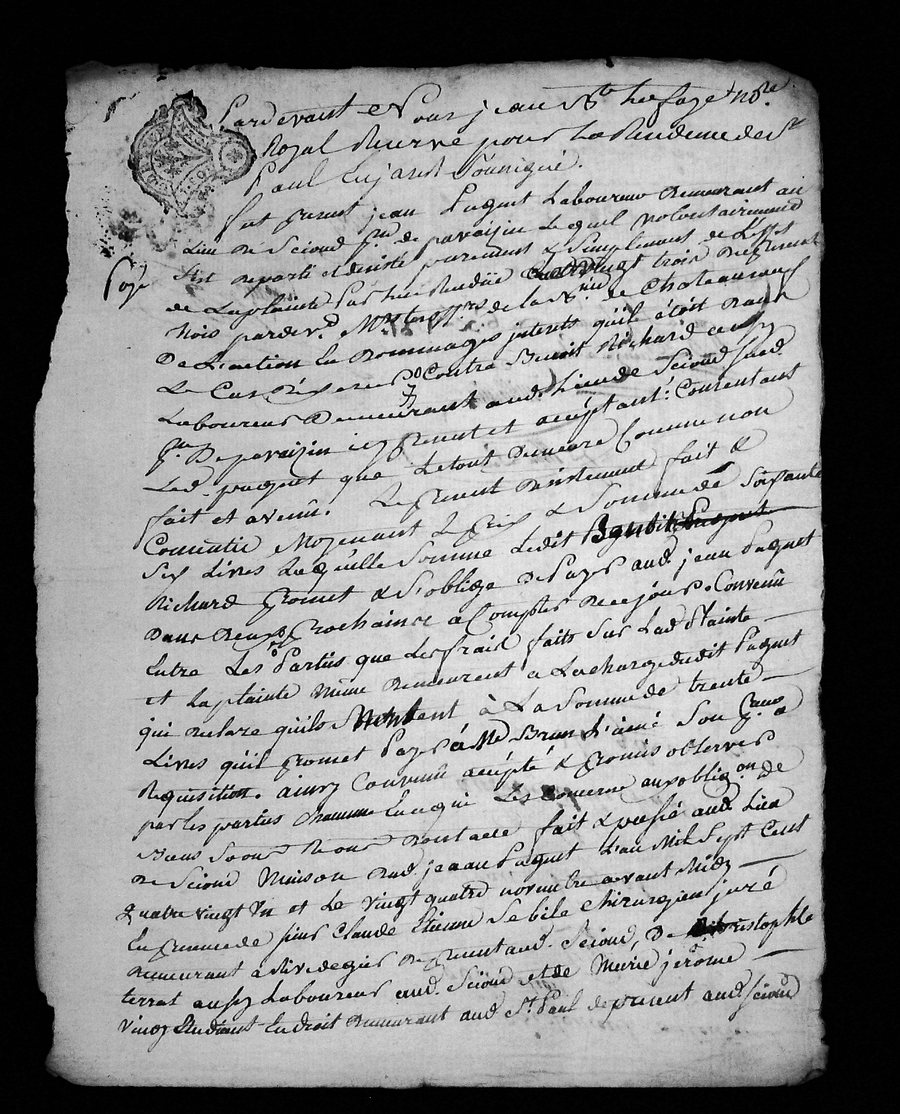 Pardevant Nous jean Bte Lefaye nore
Royal Reservé pour la Residence de St
Paul En jarest Soussigné.
fut present jean Paquet Laboureur Demeurant au
Lieu de Sciout psse de pavaizin Lequel volontairement
S'est departi et desisté purement & Simplement de L'effet
de La plainte Par luy Rendüe vingt trois du present
mois pardevt de la de Chateauneuf
De L'action En Dommages interets qu'il étoit
Le Cas Contre Benoit Richard aussy
Laboureur Demeurant aud. Lieu de Sciout sused.
psse De pavaizin icy present et acceptant: Consentant
Led. paquet que Le tout Demeure Comme non
fait et avenu. Le present Desistement fait &
Consenti Moyenant Le prix & Somme de Soixante
Six Livres Laquelle Somme Ledit
Richard promet & S'oblige De Payer aud. jean Paquet
Dans Deux prochains a Compter De ce jour. Convenü
Entre Les Parties que Les frais faits Sur Lad. Plainte
et La plainte Même Demeurent a La charge dudit Paquet
qui declare qu'ils Montent à La Somme de trente
Livres qu'il promet Payer à Me Brun L'ainé Son
Requisition. ainsy Convenü accepté & promis observer
par les parties Chacune En ce qui Les Concerne aux obligons de
Droit fait & passé aud. Lieu
de Sciout Maison dud. jean Paquet L'an Mil Sept Cent
quatre vingt Un et Le vingt quatre novembre avant Midy
En presence de sieur Claude Etienne Sebile Chirurgien juré
Demeurant à Rivedegier De present aud. Sciout, De Christophle
terrat aussy Laboureur aud. Sciout et de Marie jerome
Vincy Etudiant En droit Demeurant aud. St. Paul de present aud. Sciout